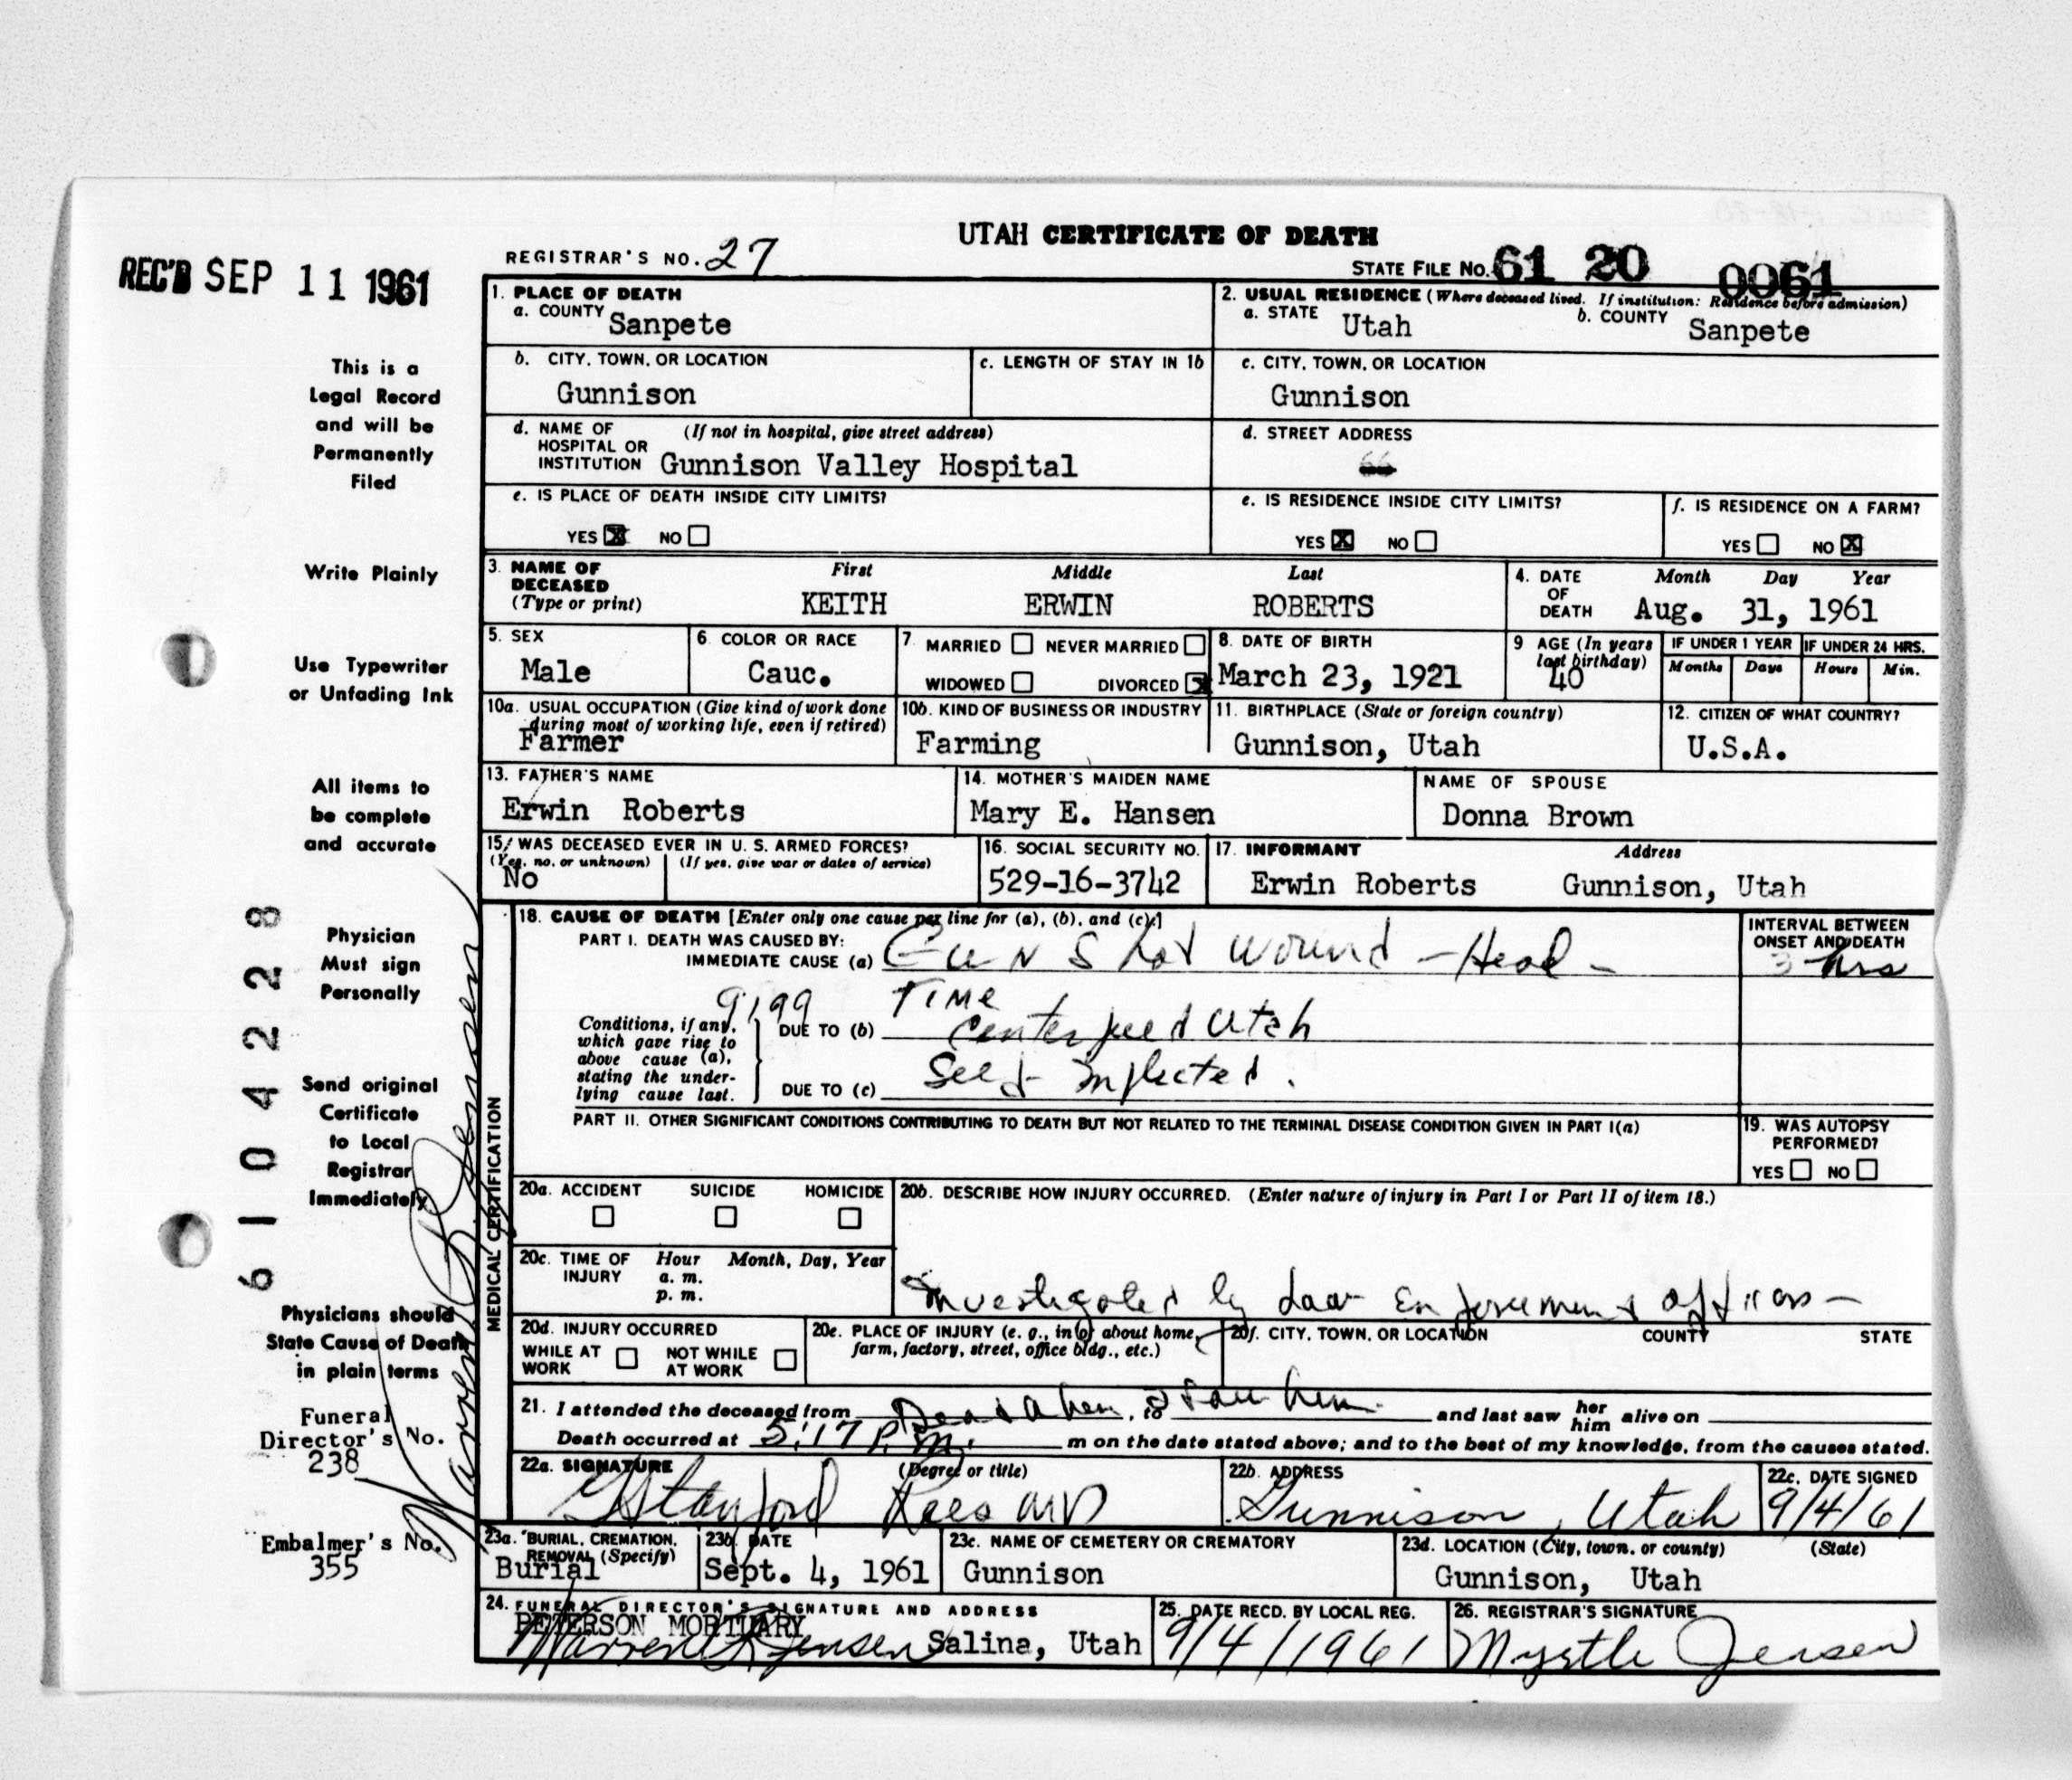 UTAH CERTIFICATE OF DEATH
REC'D SEP 11 1961
REGISTRAR'S NO. 27
STATE FILE NO. 61 20 0061
1. PLACE OF DEATH
a. COUNTY Sanpete
2. USUAL RESIDENCE (Where deceased lived. If institution: Residence before admission)
a. STATE Utah b. COUNTY Sanpete
b. CITY, TOWN, OR LOCATION Gunnison
c. LENGTH OF STAY IN 1b
c. CITY, TOWN, OR LOCATION Gunnison
d. NAME OF HOSPITAL OR INSTITUTION (If not in hospital, give street address) Gunnison Valley Hospital
d. STREET ADDRESS
e. IS PLACE OF DEATH INSIDE CITY LIMITS?
YES X NO
e. IS RESIDENCE INSIDE CITY LIMITS?
YES X NO
f. IS RESIDENCE ON A FARM?
YES NO X
3. NAME OF DECEASED (Type or print)
First Middle Last
KEITH ERWIN ROBERTS
4. DATE OF DEATH Month Day Year
Aug. 31, 1961
5. SEX Male
6. COLOR OR RACE Cauc.
7 MARRIED NEVER MARRIED
WIDOWED DIVORCED X
8. DATE OF BIRTH March 23, 1921
9 AGE (In years last birthday) 40
IF UNDER 1 YEAR Months Days
IF UNDER 24 HRS. Hours Min.
10a. USUAL OCCUPATION (Give kind of work done during most of working life, even if retired) Farmer
10b. KIND OF BUSINESS OR INDUSTRY Farming
11. BIRTHPLACE (State or foreign country) Gunnison, Utah
12. CITIZEN OF WHAT COUNTRY? U.S.A.
13. FATHER'S NAME Erwin Roberts
14. MOTHER'S MAIDEN NAME Mary E. Hansen
NAME OF SPOUSE Donna Brown
15. WAS DECEASED EVER IN U. S. ARMED FORCES?
(Yes, no, or unknown) (If yes, give war or dates of service)
No
16. SOCIAL SECURITY NO. 529-16-3742
17. INFORMANT Address
Erwin Roberts Gunnison, Utah
MEDICAL CERTIFICATION
18. CAUSE OF DEATH [Enter only one cause per line for (a), (b), and (c).]
PART I. DEATH WAS CAUSED BY:
IMMEDIATE CAUSE (a) Gun Shot Wound - Head -
INTERVAL BETWEEN ONSET AND DEATH
3 hrs
Conditions, if any, which gave rise to above cause (a), stating the underlying cause last.
9199 Time
DUE TO (b) Utah
DUE TO (c) Self Inflicted.
PART II. OTHER SIGNIFICANT CONDITIONS CONTRIBUTING TO DEATH BUT NOT RELATED TO THE TERMINAL DISEASE CONDITION GIVEN IN PART I(a)
19. WAS AUTOPSY PERFORMED?
YES NO
20a. ACCIDENT SUICIDE HOMICIDE
20b. DESCRIBE HOW INJURY OCCURRED. (Enter nature of injury in Part I or Part II of item 18.)
Investigated by Law Enforcement officers -
20c. TIME OF INJURY Hour Month, Day, Year
a. m.
p. m.
20d. INJURY OCCURRED
WHILE AT WORK NOT WHILE AT WORK
20e. PLACE OF INJURY (e. g., in or about home, farm, factory, street, office bldg., etc.)
20f. CITY, TOWN, OR LOCATION COUNTY STATE
21. I attended the deceased from Dead when, to I saw him. and last saw her him alive on
Death occurred at 5:17 P.m. m on the date stated above; and to the best of my knowledge, from the causes stated.
22a. SIGNATURE (Degree or title)
G Stanford Rees MD
22b. ADDRESS Gunnison, Utah
22c. DATE SIGNED 9/4/61
23a. BURIAL, CREMATION, REMOVAL (Specify) Burial
23b. DATE Sept. 4, 1961
23c. NAME OF CEMETERY OR CREMATORY Gunnison
23d. LOCATION (City, town, or county) (State)
Gunnison, Utah
24. FUNERAL DIRECTOR'S SIGNATURE AND ADDRESS
PETERSON MORTUARY
Warren L Jensen Salina, Utah
25. DATE RECD. BY LOCAL REG. 9/4/1961
26. REGISTRAR'S SIGNATURE Myrtle Jensen
This is a
Legal Record
and will be
Permanently
Filed
Write Plainly
Use Typewriter
or Unfading Ink
All items to
be complete
and accurate
Physician
Must sign
Personally
Send original
Certificate
to Local
Registrar
Immediately
Physicians should
State Cause of Death
in plain terms
Funeral
Director's No.
238
Embalmer's No.
355
61 04228
Warren L Jensen